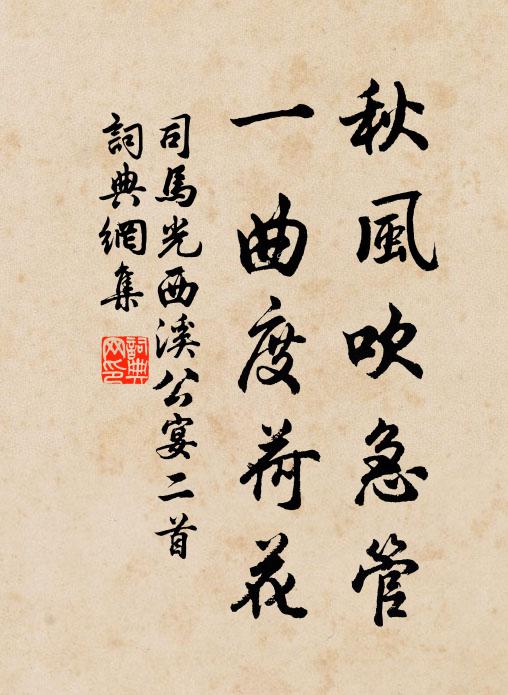 秋風吹急管
一曲度荷花
司馬光西溪公宴二首
詞典網集
詞典网印